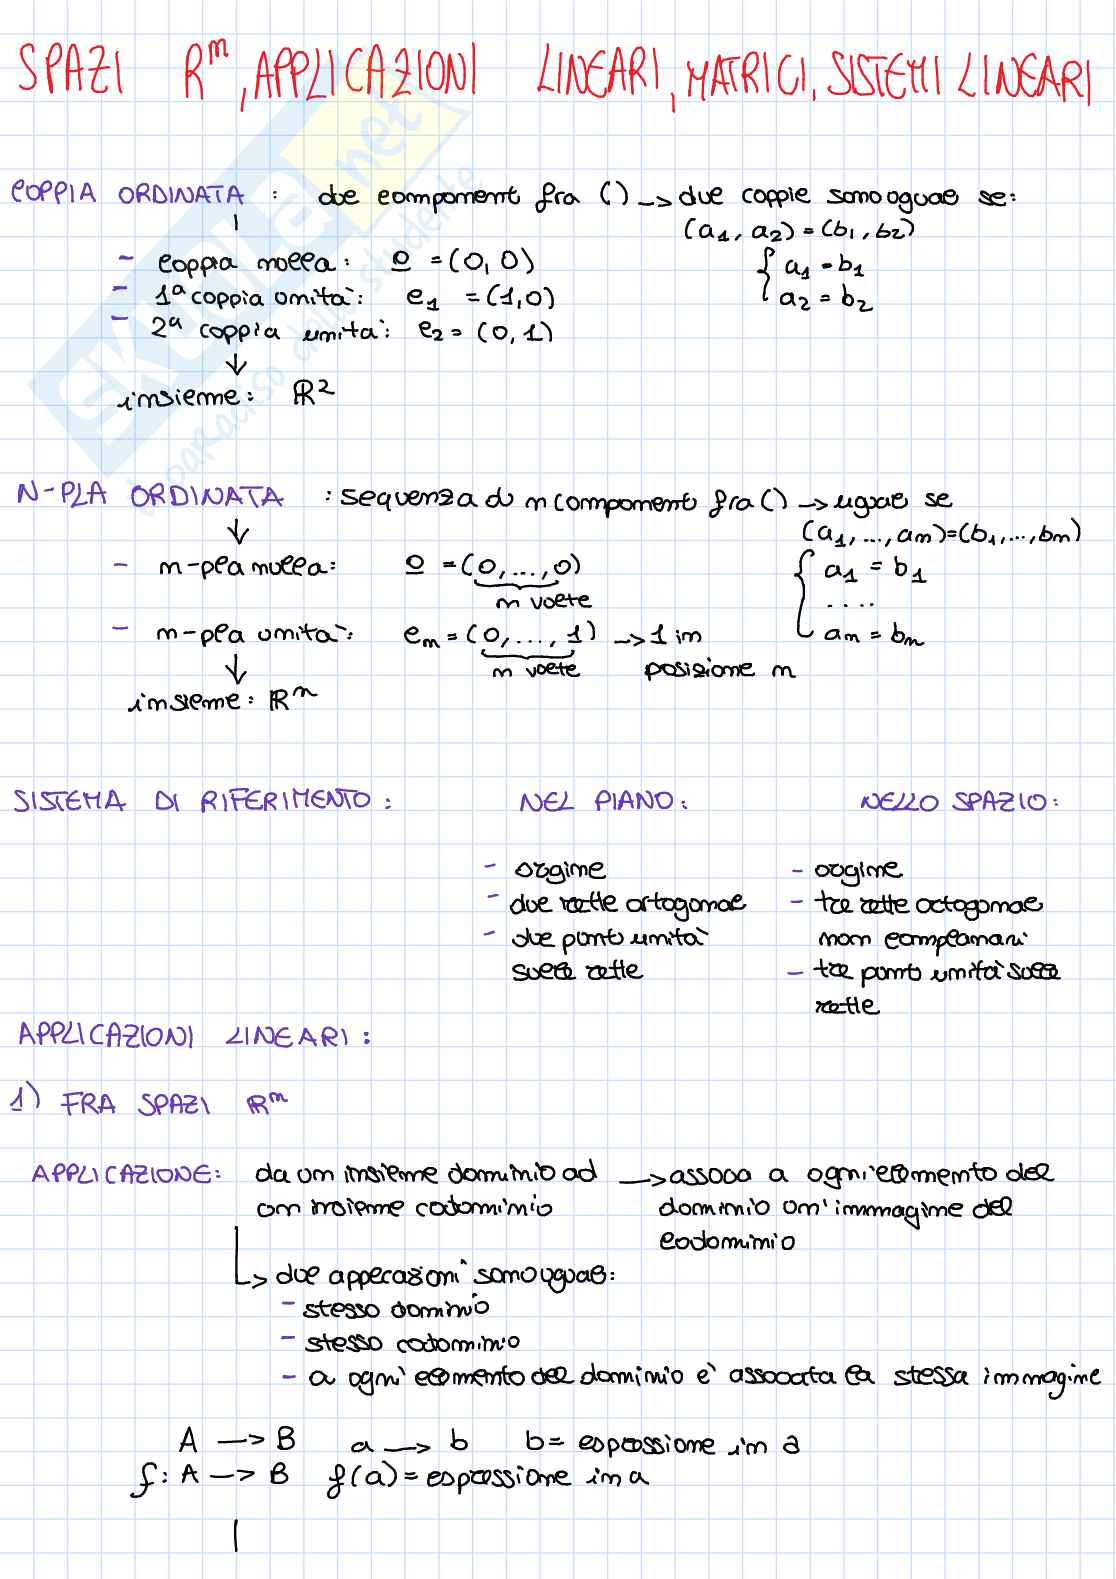 SPAZI Rⁿ, APPLICAZIONI LINEARI, MATRICI, SISTEMI LINEARI
COPPIA ORDINATA : due componenti fra () → due coppie sono uguali se:
(a₁, a₂) = (b₁, b₂)
{ a₁ = b₁
a₂ = b₂
- coppia nulla: 0 = (0, 0)
- 1ª coppia unità: e₁ = (1, 0)
- 2ª coppia unità: e₂ = (0, 1)
↓
insieme: ℝ²
N-PLA ORDINATA : sequenza di n componenti fra () → uguali se
(a₁, ..., aₙ) = (b₁, ..., bₙ)
{ a₁ = b₁
....
aₙ = bₙ
↓
- n-pla nulla: 0 = (0, ..., 0)
n volte
- n-pla unità: eₙ = (0, ..., 1) → 1 in
n volte posizione n
↓
insieme: ℝⁿ
SISTEMA DI RIFERIMENTO: NEL PIANO: NELLO SPAZIO:
- origine
- due rette ortogonali
- due punti unità
sulle rette
- origine
- tre rette ortogonali
non complanari
- tre punti unità sulle
rette
APPLICAZIONI LINEARI:
1) FRA SPAZI ℝⁿ
APPLICAZIONE: da un insieme dominio ad → associa a ogni elemento del
un insieme codominio dominio un'immagine del
codominio
↳ due applicazioni sono uguali:
- stesso dominio
- stesso codominio
- a ogni elemento del dominio è associata la stessa immagine
A → B a → b b = espressione in a
f: A → B f(a) = espressione in a
SKUOLA.net
il paradiso dello studente